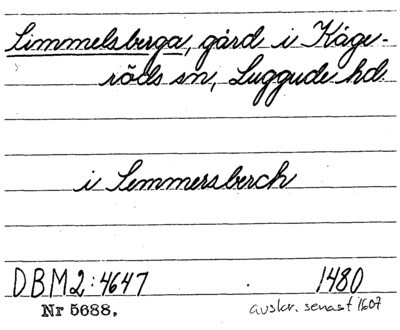 Simmelsberga, gård i Kåge-
röds sn, Luggude hd.
i Semmersberch
DBM2:4647 1480
Nr 5688. avskr. senast 1607